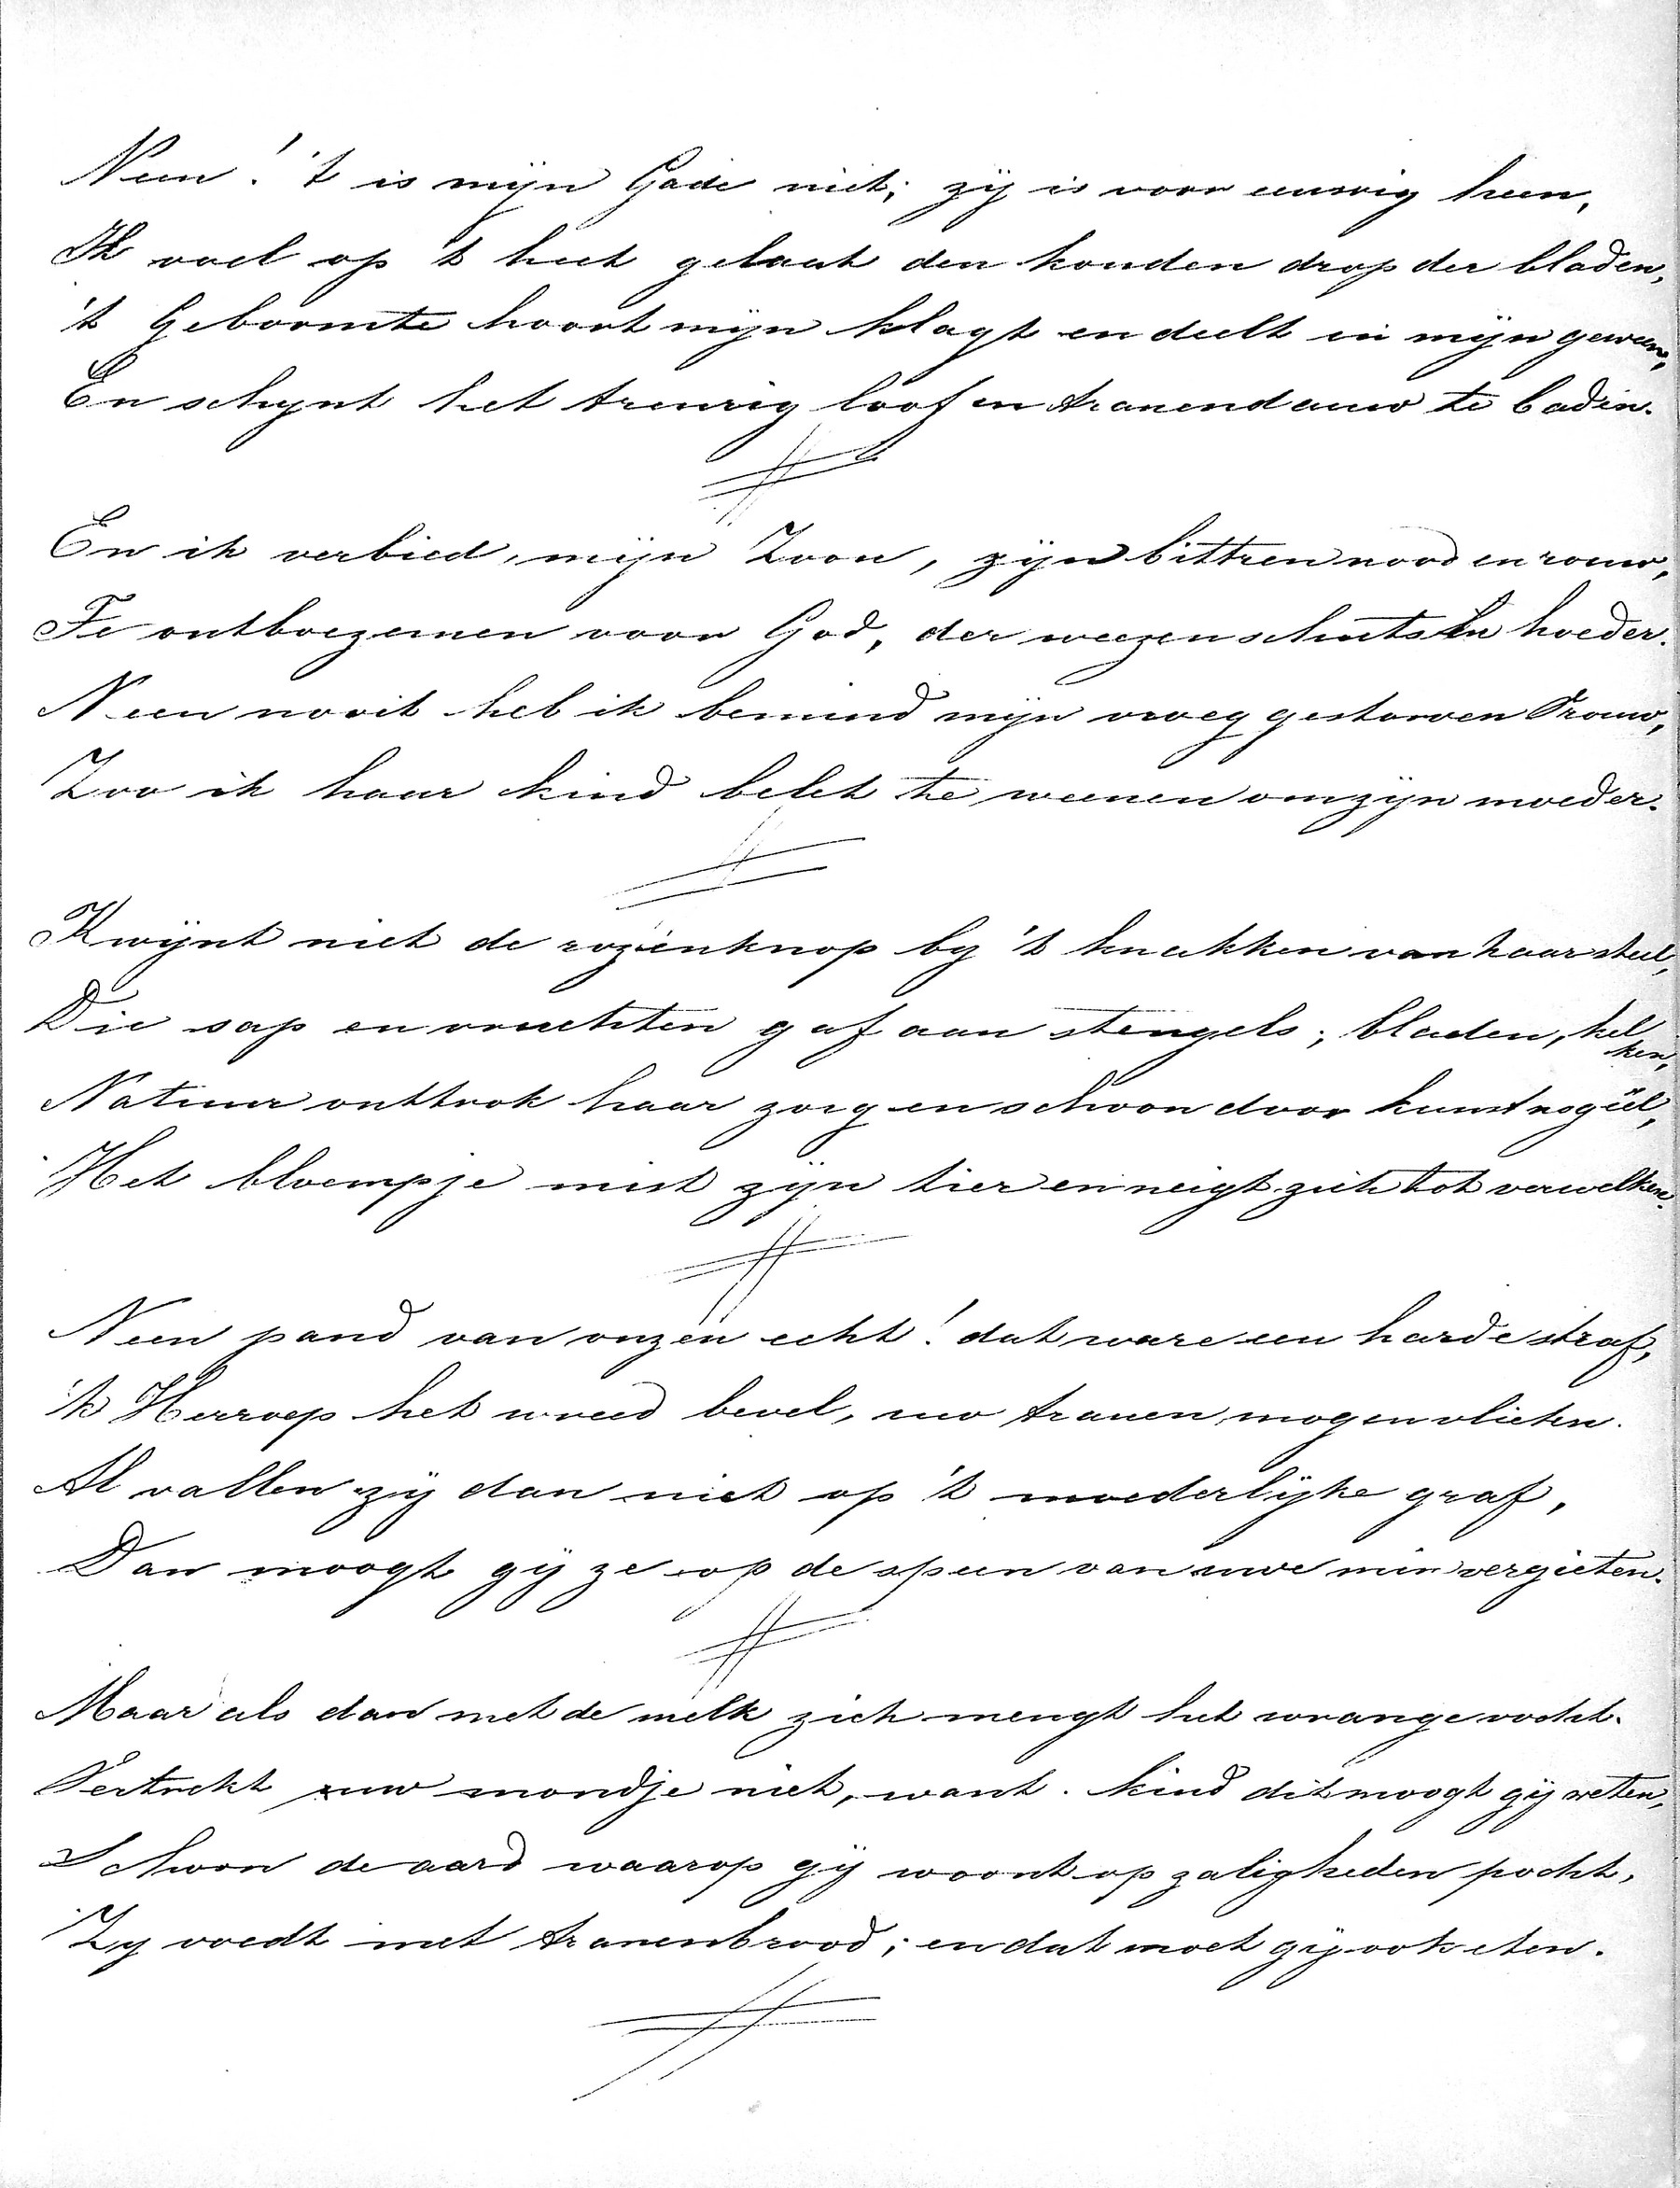 Neen! 't is mijn Gade niet; zij is voor eeuwig heen,
Ik voel op 't heet gelaat den kouden drop der bladen,
't Geboomte hoort mijn klagt en deelt in mijn geween,
En schynt het treurig loof in tranendauw te baden.
En ik verbied, mijn Zoon, zijn bittren nood en rouw,
Te ontboezemen voor God, der weezen schuts en hoeder.
Neen nooit heb ik bemind mijn vroeg gestorven Vrouw,
Zoo ik haar kind belet te weenen om zijn moeder.
Kwijnt niet de rozenknop by 't knakken van haar steel,
Die sap en vruchten gaf aan stengels, bladen, kel
ken,
Natuur onttrok haar zorg en schoon door kunst
Het bloempje mist zijn tier en neigt zich tot verwelken.
Neen pand van onzen echt! dat ware een harde straf,
'k Herroep het wreed bevel, uw tranen mogen vlieten.
Al vallen zij dan niet op 't moederlijke graf,
Dan moogt gij ze op de speen van uwe min vergieten.
Maar als dan met de melk zich mengt het wrange vocht.
Vertrekt uw mondje niet, want. kind dit moogt gij weten,
Schoon de aard waarop gij woont op zaligheden pocht,
Zy voedt met tranenbrood; en dat moet gij ook eten.